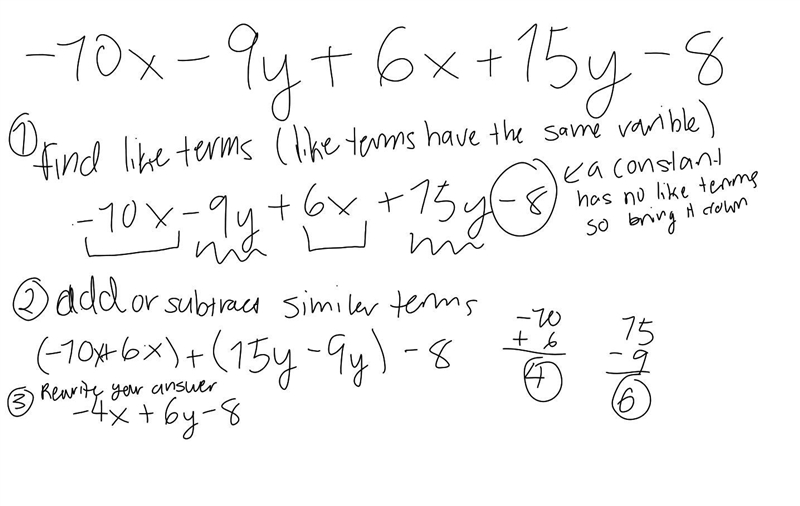 -10x - 9y + 6x + 15y - 8
① find like terms (like terms have the same varible)
-10x - 9y + 6x + 15y - 8
< a constant
has no like terms
so bring it down
② add or subtract similar terms
(-10x+6x) + (15y - 9y) - 8
-10
+ 6
4
15
- 9
6
③ Rewrite your answer
-4x + 6y - 8